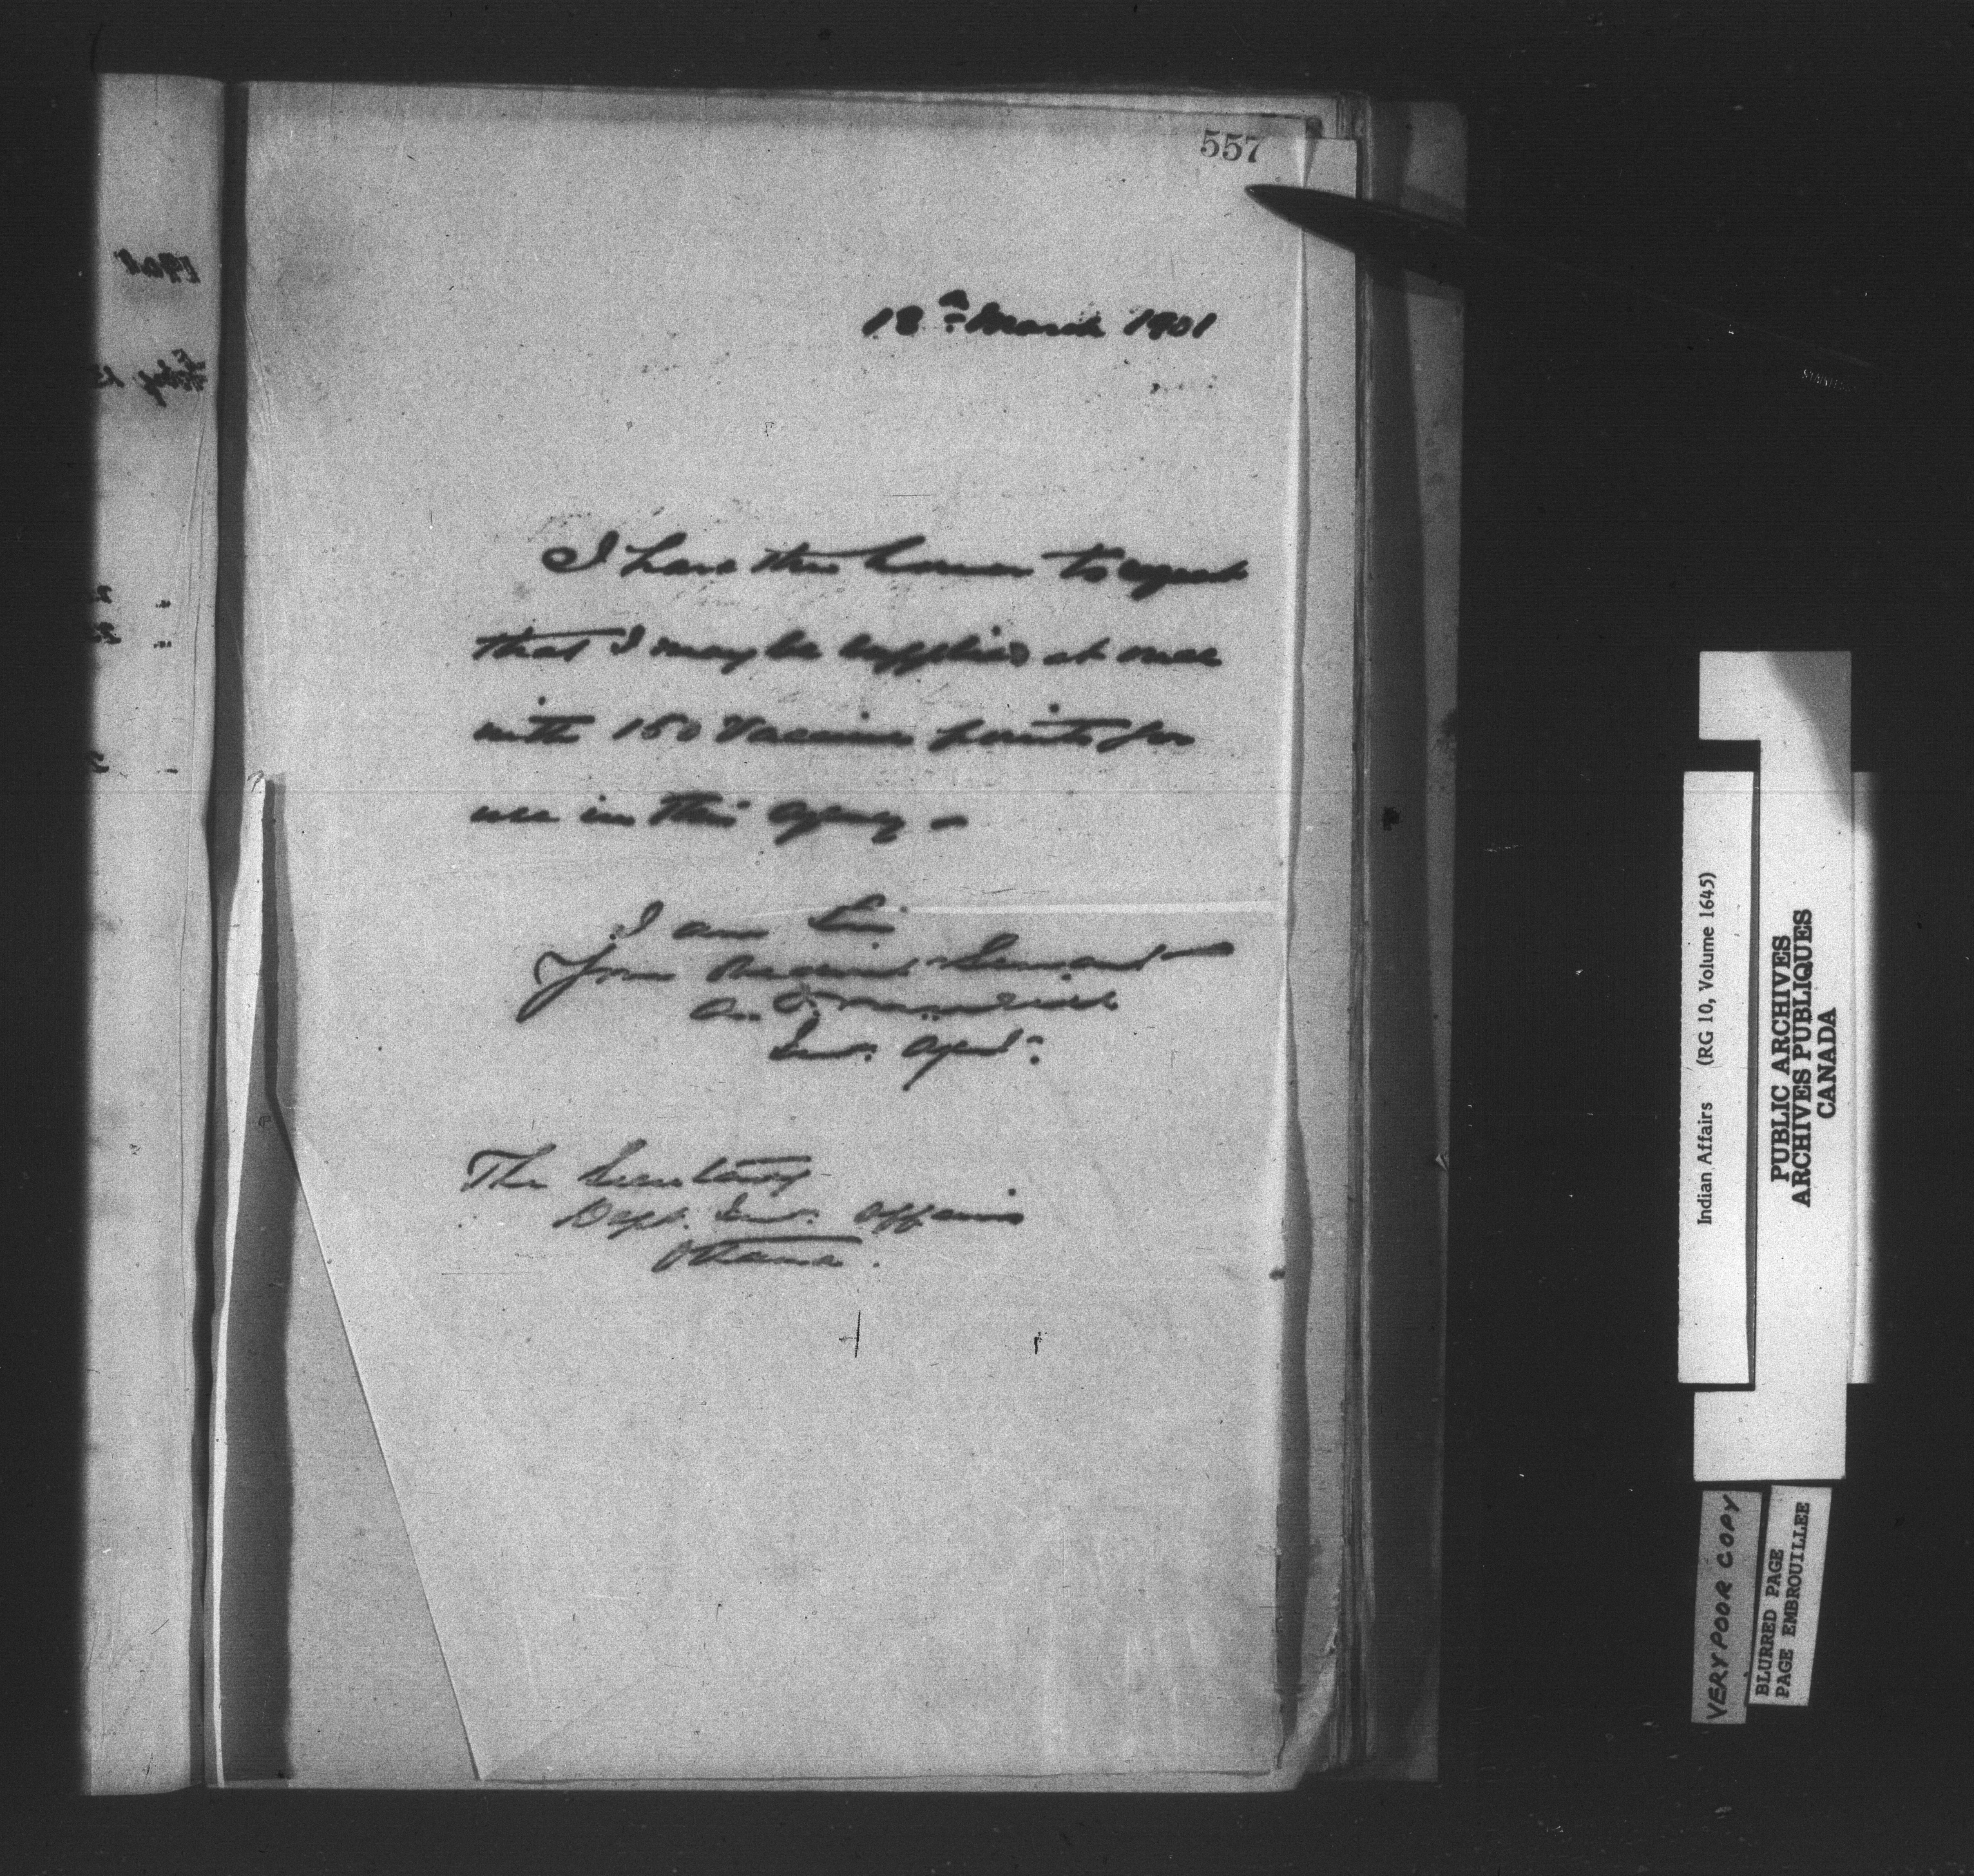 557
18th March 1901
I have the honor to request
that I may be supplied at once
with 150 Vaccine points for
use in this agency -
I am Sir
Your Obedient Servant
Ind. Agent
The Secretary
Dept. Ind. Affairs
Ottawa.
Indian Affairs (RG 10, Volume 1645)
PUBLIC ARCHIVES
ARCHIVES PUBLIQUES
CANADA
VERY POOR COPY
BLURRED PAGE
PAGE EMBROUILLEE